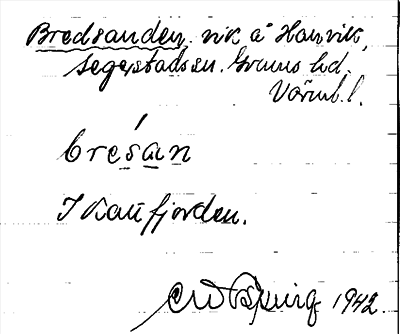 Bredsanden, vik å Hamvik,
Segerstads sn. Grums hd.
Värml. l.
bresan
I Kattfjorden.
1942